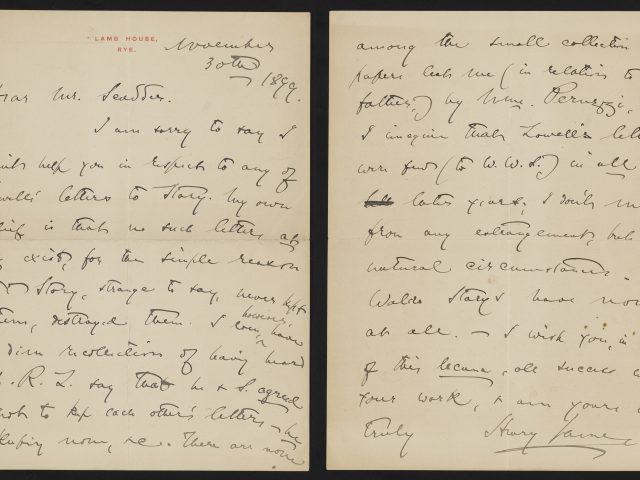 LAMB HOUSE,
RYE.
November
30th
1899.
ear Mr. Scudder.
I am sorry to say I
help you in respect to any of
well's letters to Story. My own
is that no such letters, as
exist, for the simple reason
Story, strange to say, never kept
them, destroyed them. I
however, have
a dim recollection of having heard
J. R. L. say that he & S. agreed
not to keep each other's letters – he
keeping none, &c. There are none
among the small collection
papers lent me (in relation to
father,) by Mme. Peruzzi,
I imagine that Lowell's let
were few (to W. W. S.) in all
later years, I don't m
from any estrangement, but
natural circumstance.
Waldo Storys have no
at all. – I wish you, in
of this lacuna, all success
your work, & am yours
truly Henry James